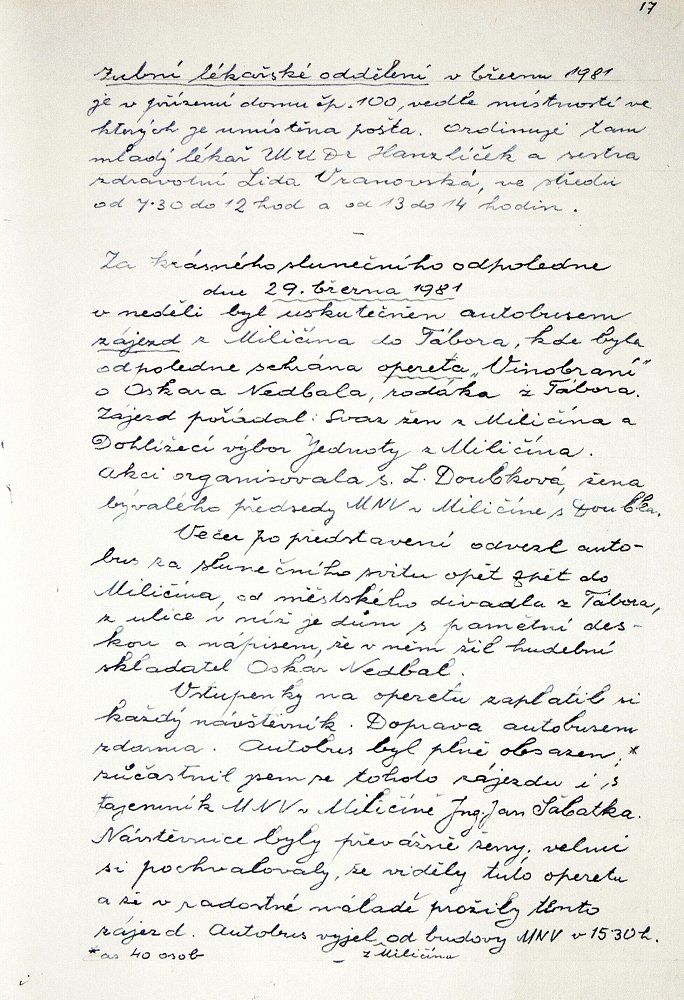 17
Zubní lékařské oddělení v březnu 1981
je v přízemí domu čp. 100, vedle místností ve
kterých je umístěna pošta. Ordinuje tam
mladý lékař MUDr Hanzlíček a sestra
zdravotní Lída Vranovská, ve středu
od 7.30 do 12 hod a od 13 do 14 hodin.
–
Za krásného slunečního odpoledne
dne 29. března 1981
v neděli byl uskutečněn autobusem
zájezd z Miličína do Tábora, kde byla
odpoledne sehrána opereta „Vinobraní"
o Oskara Nedbala, rodáka z Tábora.
Zájezd pořádal: Svaz žen z Miličína a
Dohlížecí výbor Jednoty z Miličína.
Akci organisovala s. L. Doubková, žena
bývalého předsedy MNV v Miličíne s Doubka.
Večer po představení odvezl auto-
bus za slunečního svitu opět zpět do
Miličína, od městského divadla z Tábora,
z ulice v níž je dům s pamětní des-
kou a nápisem, že v něm žil hudební
skladatel Oskar Nedbal.
Vstupenky na operetu zaplatil si
každý návštěvník. Doprava autobusem
zdarma. Autobus byl plně obsazen;*
zúčastnil jsem se tohoto zájezdu i s
tajemník MNV v Miličíně Ing. Jan Sábatka.
Návštěvnice byly převážně ženy, velmi
si pochvalovaly, že viděly tuto operetu
a že v radostné náladě prožily tento
zájezd. Autobus vyjel od budovy MNV v 1530 h.
*as 40 osob – z Miličína